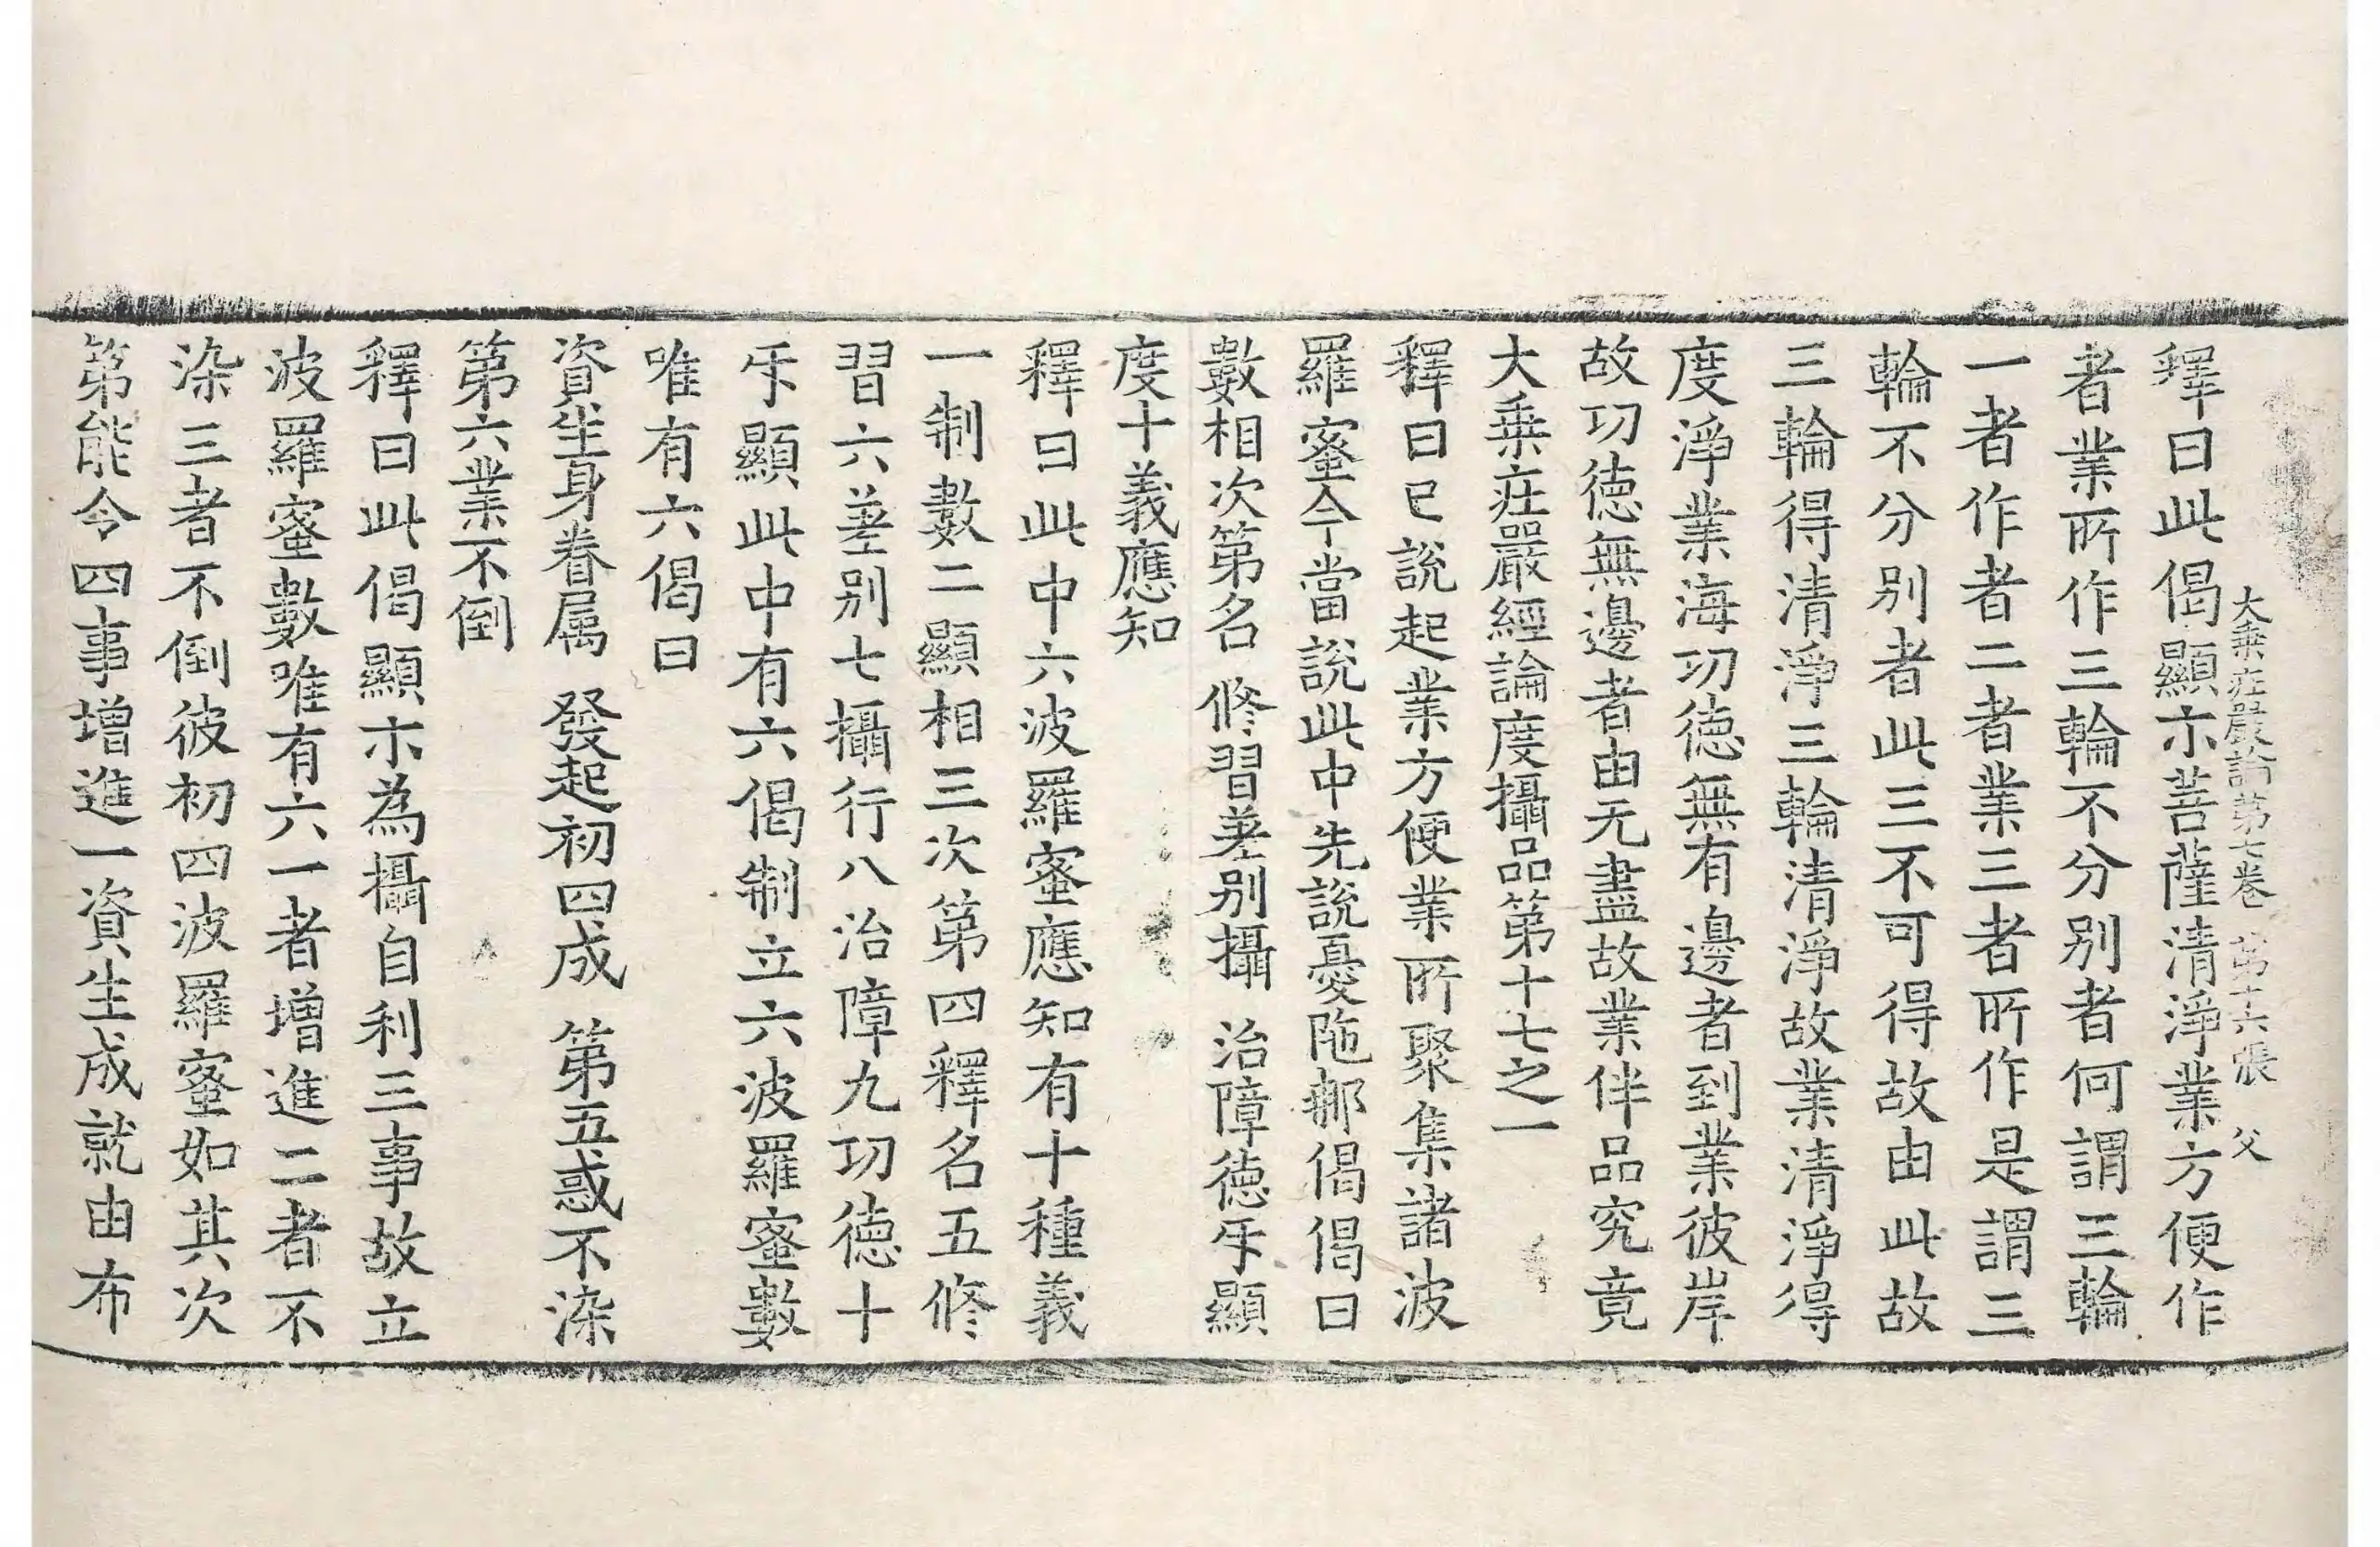 大乗莊嚴論第七卷 第十六張 父
釋曰此偈顯示菩薩清淨業方便作
者業所作三輪不分别者何謂三輪
一者作者二者業三者所作是謂三
輪不分别者此三不可得故由此故
三輪得清淨三輪清淨故業清淨得
度淨業海功徳無有邊者到業彼岸
故功徳無邊者由无盡故業伴品究竟
大乗莊嚴經論度攝品第十七之一
釋曰已說起業方便業所聚集諸波
羅蜜今當說此中先說憂陁郍偈偈曰
數相次第名 修習差别攝 治障徳㸦顯
度十義應知
釋曰此中六波羅蜜應知有十種義
一制數二顯相三次第四釋名五修
習六差别七攝行八治障九功徳十
㸦顯此中有六偈制立六波羅蜜數
唯有六偈曰
資生身眷属 發起初四成 第五惑不染
第六業不倒
釋曰此偈顯示為攝自利三事故立
波羅蜜數唯有六一者增進二者不
染三者不倒彼初四波羅蜜如其次
第能令四事增進一資生成就由布